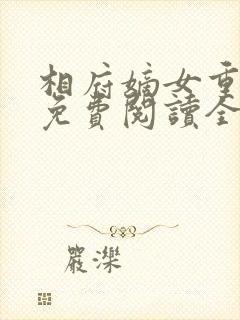 相府嫡女重
免費閱讀全
嚴濼